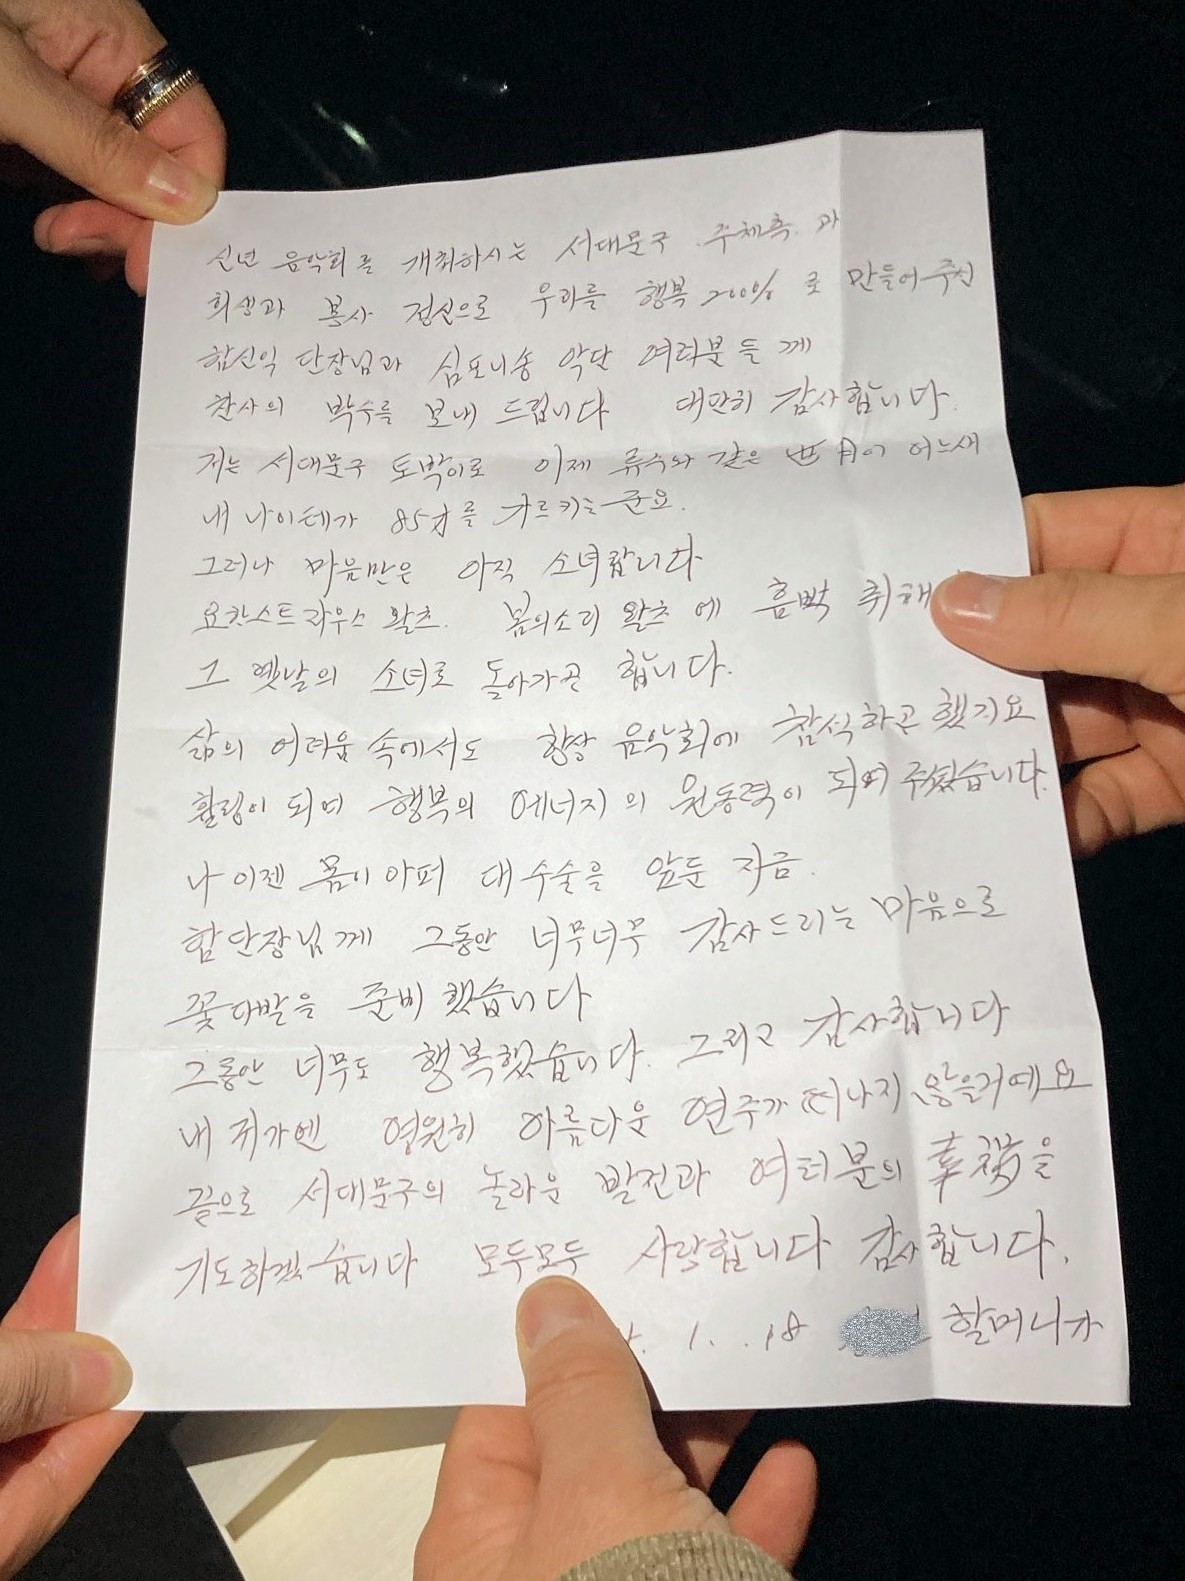 신년 음악회를 개최하시는 서대문구 주체측과
희생과 봉사 정신으로 우리를 행복 200% 로 만들어주신
함신익 단장님과 심포니송 악단 여러분들께
찬사의 박수를 보내 드립니다 대단히 감사합니다.
저는 서대문구 토박이로 이제 류수와 같은 世月이 어느새
내 나이테가 85才를 가르키는군요.
그러나 마음만은 아직 소녀랍니다
요한스트라우스 왈츠. 봄의소리 왈츠에 흠뻑 취해
그 옛날의 소녀로 돌아가곤 합니다.
삶의 어려움 속에서도 항상 음악회에 참석하곤 했지요
활림이 되며 행복의 에너지의 원동력이 되며 주셨습니다.
나 이젠 몸이 아퍼 대수술을 앞둔 지금.
함단장님께 그동안 너무너무 감사드리는 마음으로
꽃다발을 준비했습니다
그동안 너무도 행복했습니다. 그리고 감사합니다
내 귀가엔 영원히 아름다운 연주가 떠나지 않을거예요
끝으로 서대문구의 놀라운 발전과 여러분의 幸福을
기도하겠습니다 모두모두 사랑합니다 감사합니다.
1. .18 할머니가